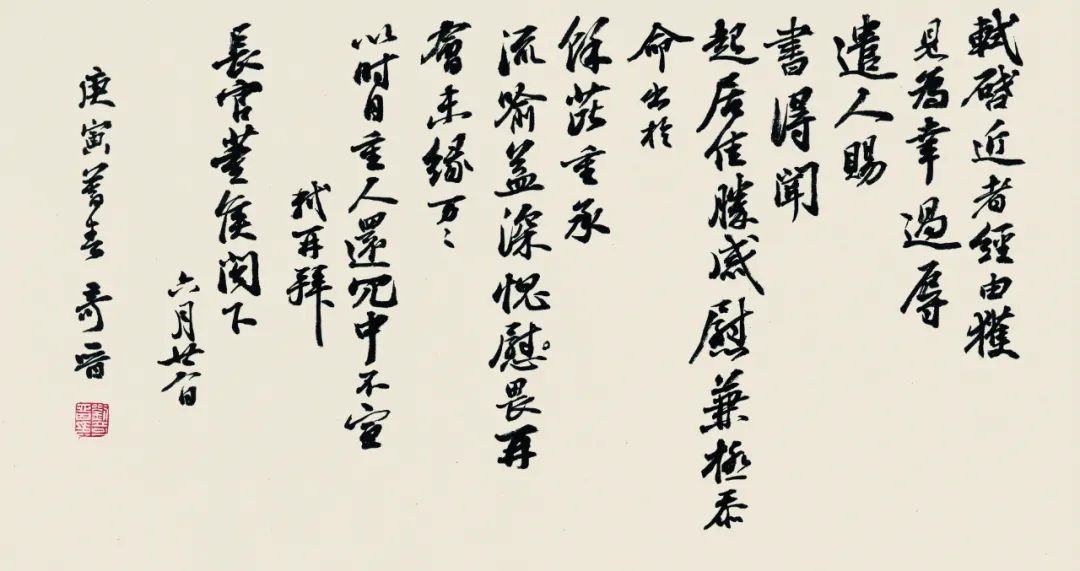 軾啓近者經由獲
見為幸過辱
遣人賜
書得聞
起居佳勝感慰兼極忝
命出於
餘芘重承
流喻益深愧慰畏再
會未緣万〻
以時自重人還冗中不宣
軾再拜
長官董侯閤下
六月廿八日
庚寅暮春 奇晉